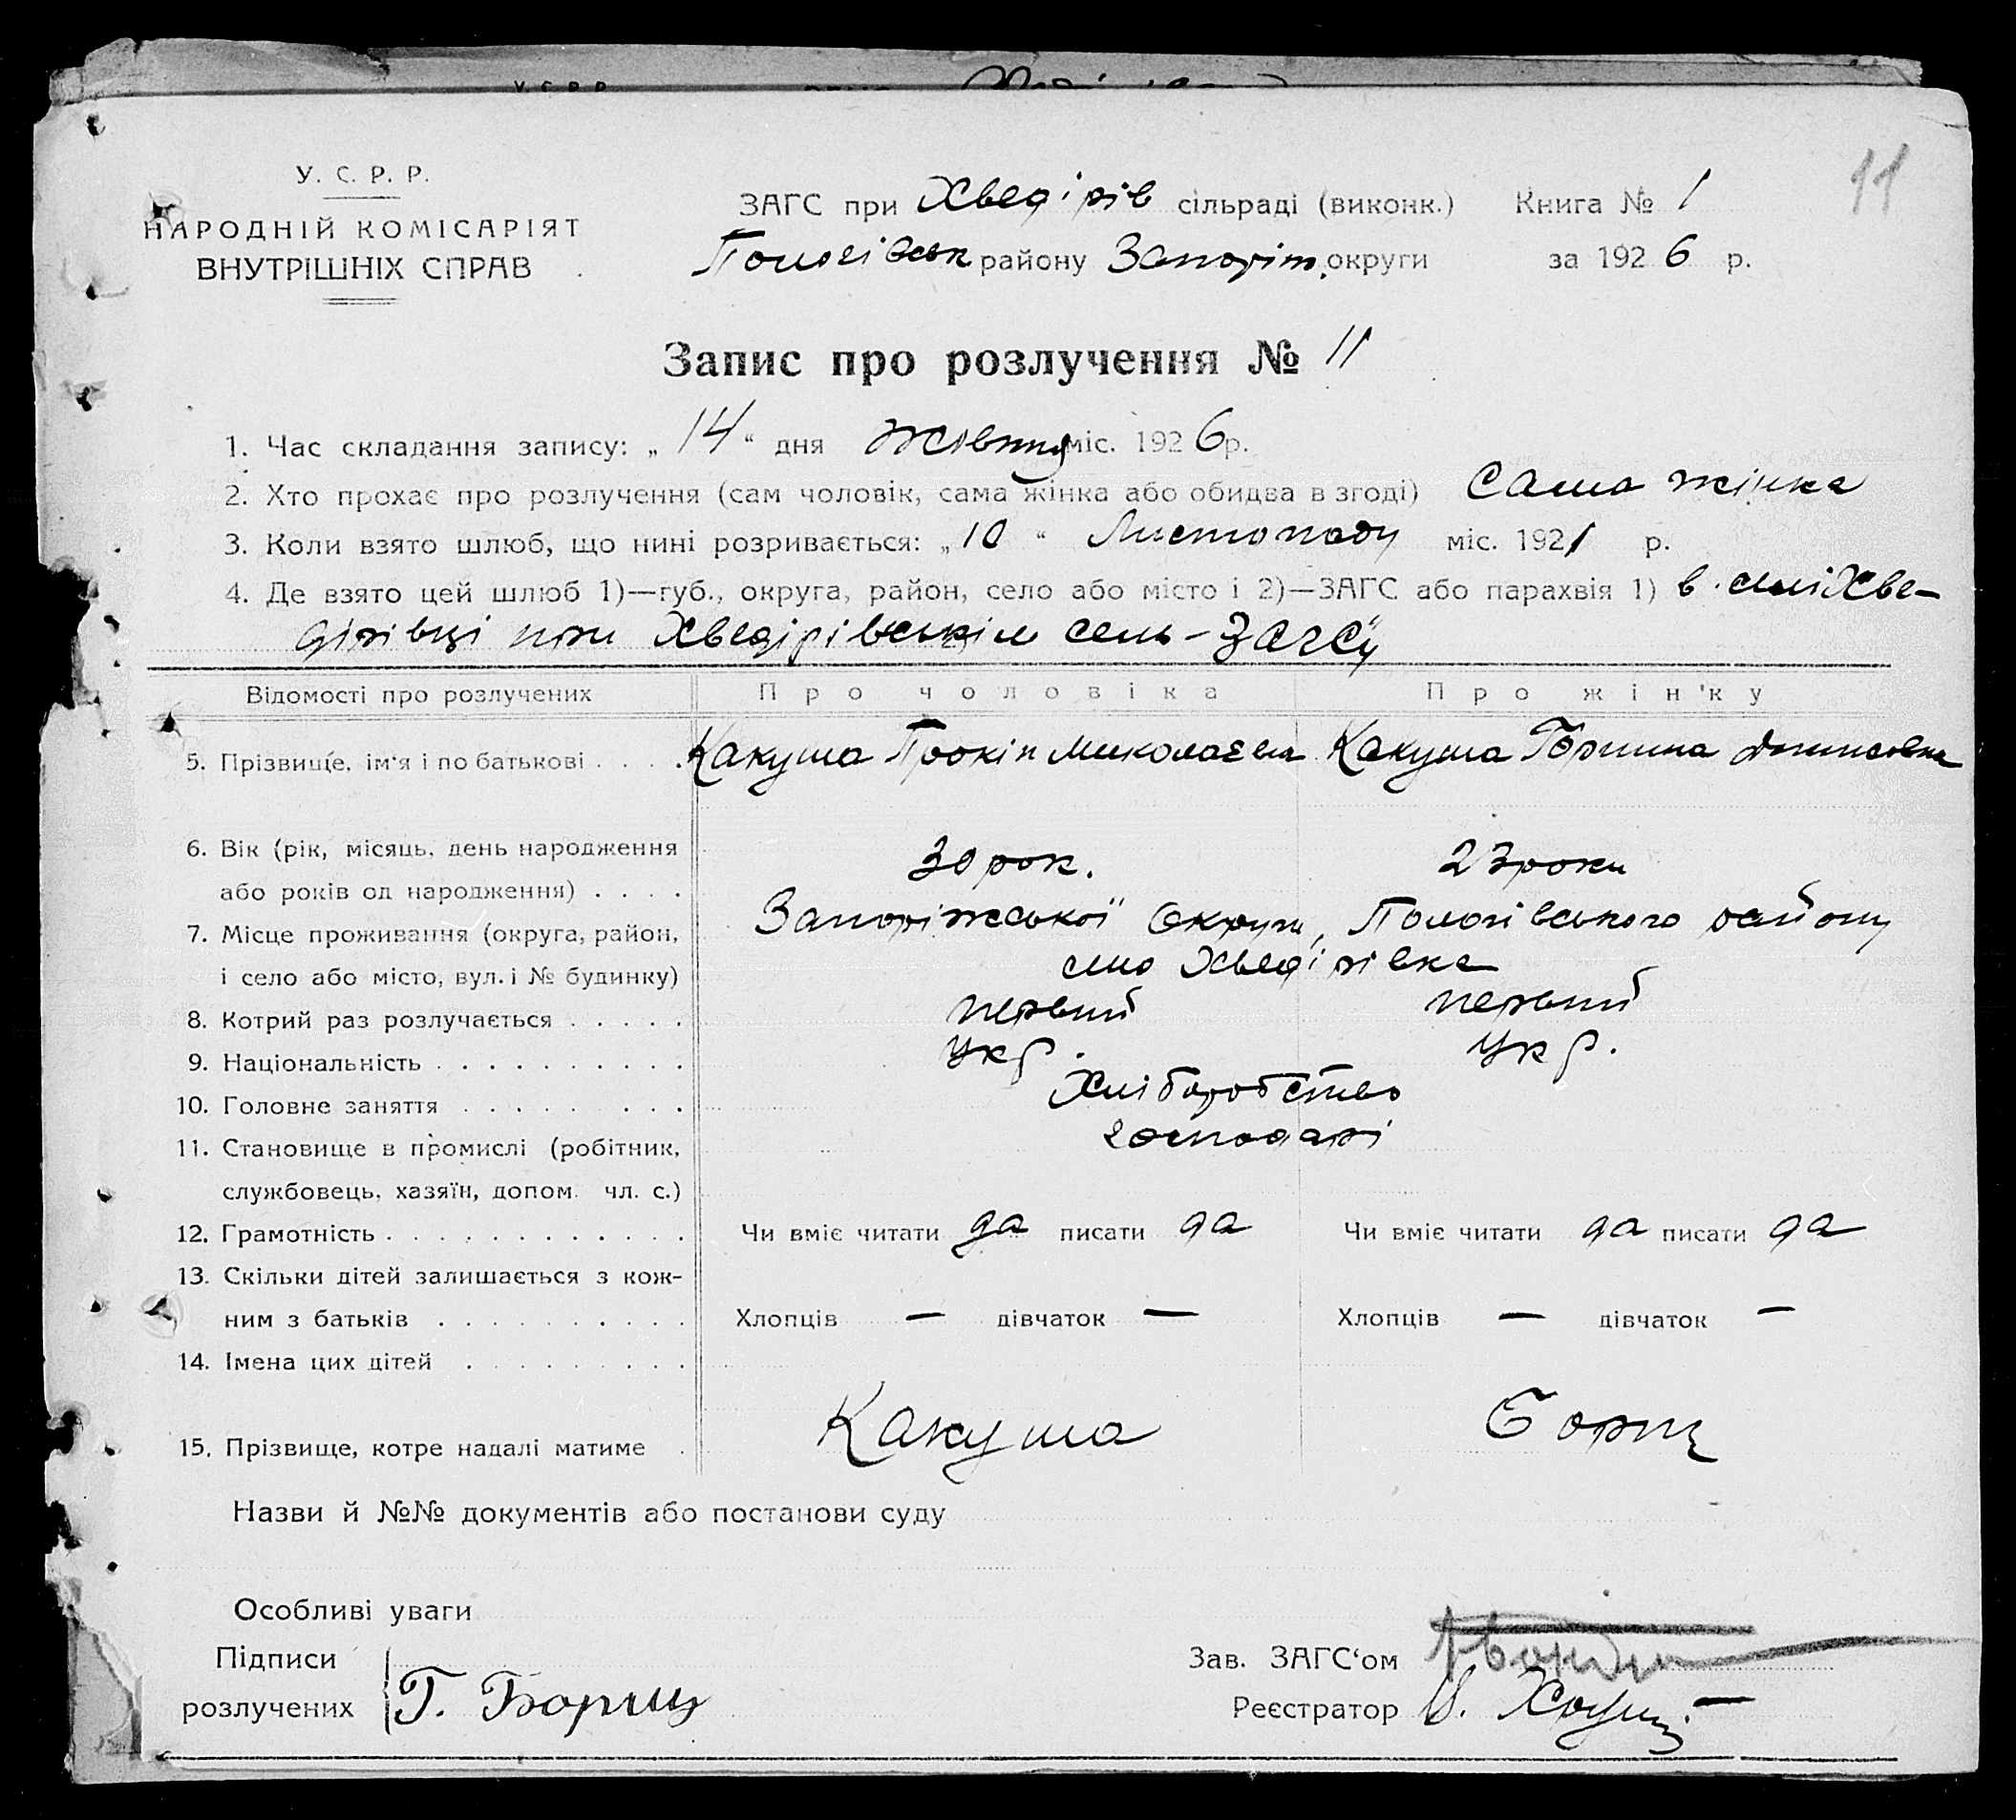 11
У. С. Р. Р.
НАРОДНІЙ КОМІСАРІЯТ
ВНУТРІШНІХ СПРАВ
ЗАГС при Хведірів сільраді (виконк.) Книга № 1
Пологівськ району Запоріж. округи за 1926 р.
Запис про розлучення № 11
1. Час складання запису: „14“ дня жовтня міс. 1926 р.
2. Хто прохає про розлучення (сам чоловік, сама жінка або обидва в згоді) сама жінка
3. Коли взято шлюб, що нині розривається: „10“ Листопаду міс. 1921 р.
4. Де взято цей шлюб 1)—губ., округа, район, село або місто і 2)—ЗАГС або парахвія 1) в селі Хве-
дірівці при Хведірівськім сель-ЗАГСі
Відомості про розлучених Про чоловіка Про жінку
5. Прізвище, ім'я і по батькові . . . . Какуша Прокіп Миколаєв Какуша Горпина
6. Вік (рік, місяць, день народження
або років од народження) . . . . 30 рок. 23 роки
7. Місце проживання (округа, район, Запоріжської Округи, Пологівського району
і село або місто, вул. і № будинку) село Хведірівка
8. Котрий раз розлучається . . . . . первий первий
9. Національність . . . . . . . . . . Укр. Укр.
10. Головне заняття . . . . . . . . Хліборобство
11. Становище в промислі (робітник, господарі
службовець, хазяїн, допом. чл. с.)
12. Грамотність . . . . . . . . . . . . Чи вміє читати да писати да Чи вміє читати да писати да
13. Скільки дітей залишається з кож-
ним з батьків . . . . . . . . . . Хлопців — дівчаток — Хлопців — дівчаток —
14. Імена цих дітей . . . . . . . . .
15. Прізвище, котре надалі матиме . Какуша Борщ
Назви й №№ документів або постанови суду
Особливі уваги
Підписи
розлучених Г. Борщ
Зав. ЗАГС‘ом
Реєстратор